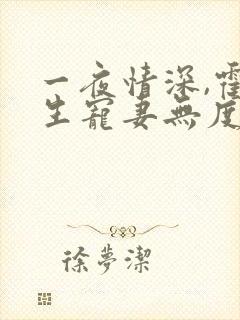 一夜情深,霍
生寵妻無度
徐夢潔